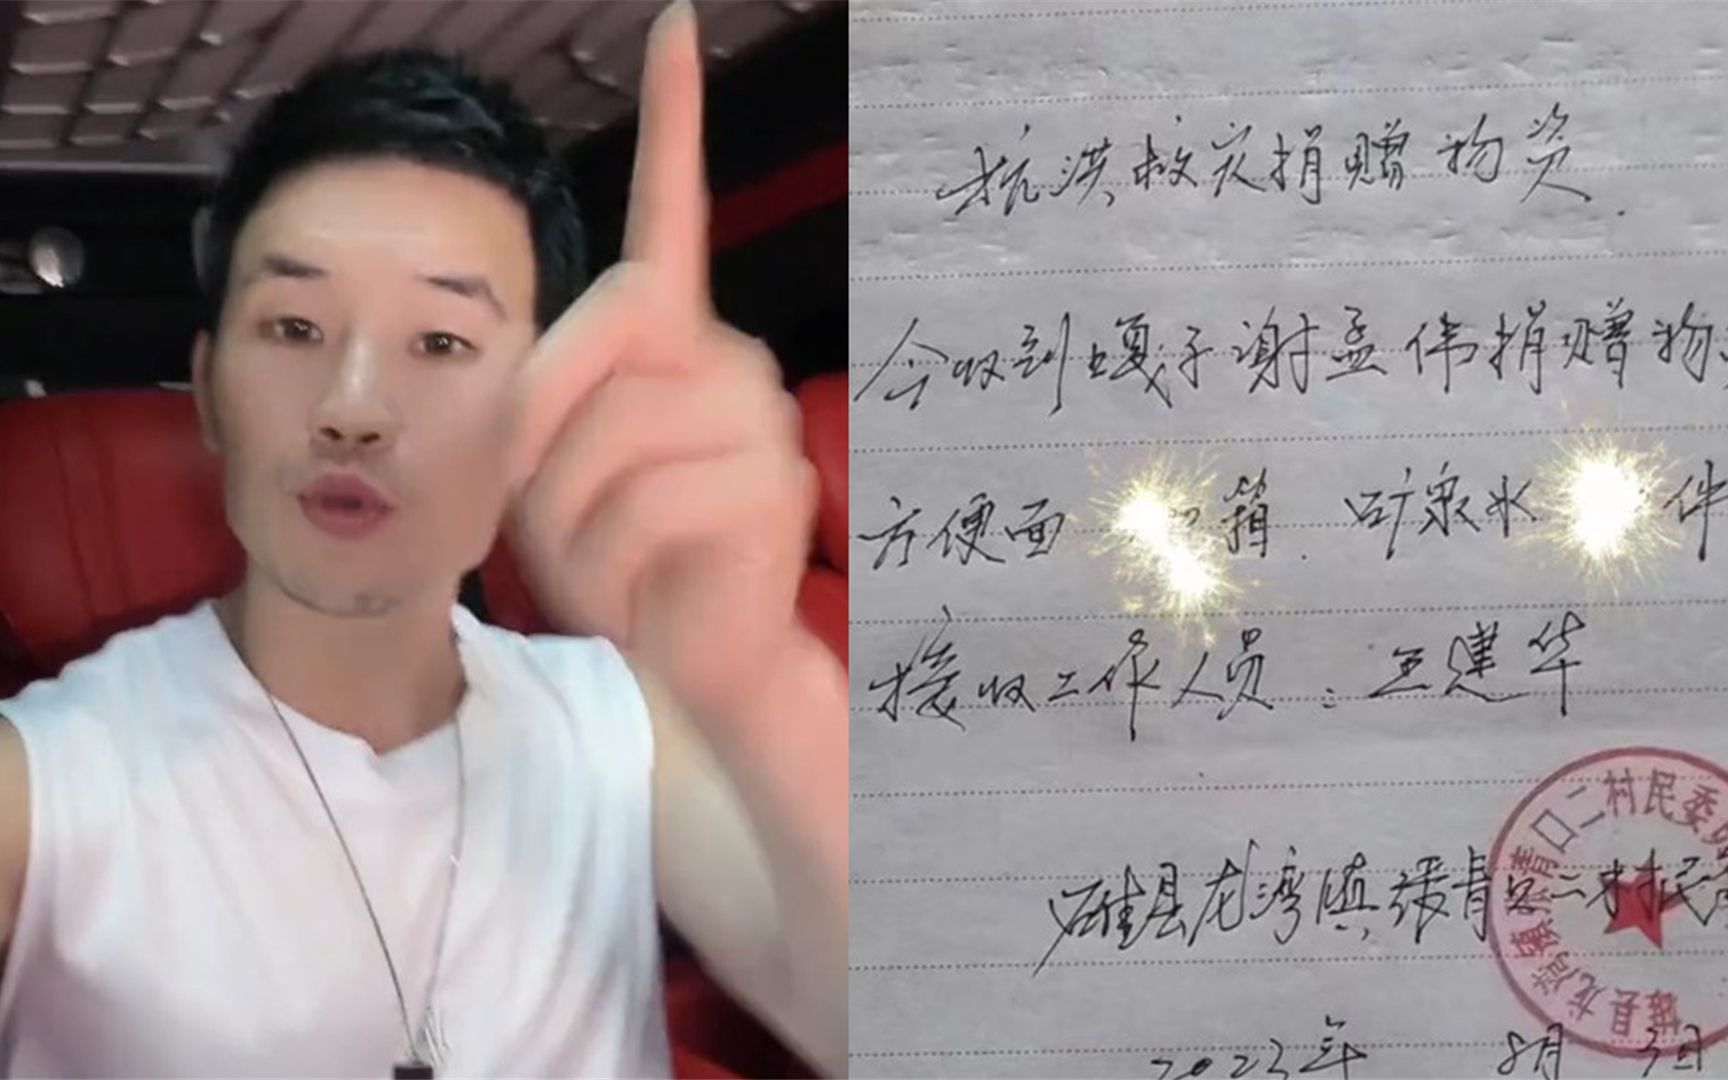 抗洪救灾捐赠物资.
今收到嘎子谢孟伟捐赠物
方便面 箱. 矿泉水 件
接收工作人员:王建华
雄县龙湾镇张青口二村民
2023年 8月 3日
雄县龙湾镇张青口二村民委